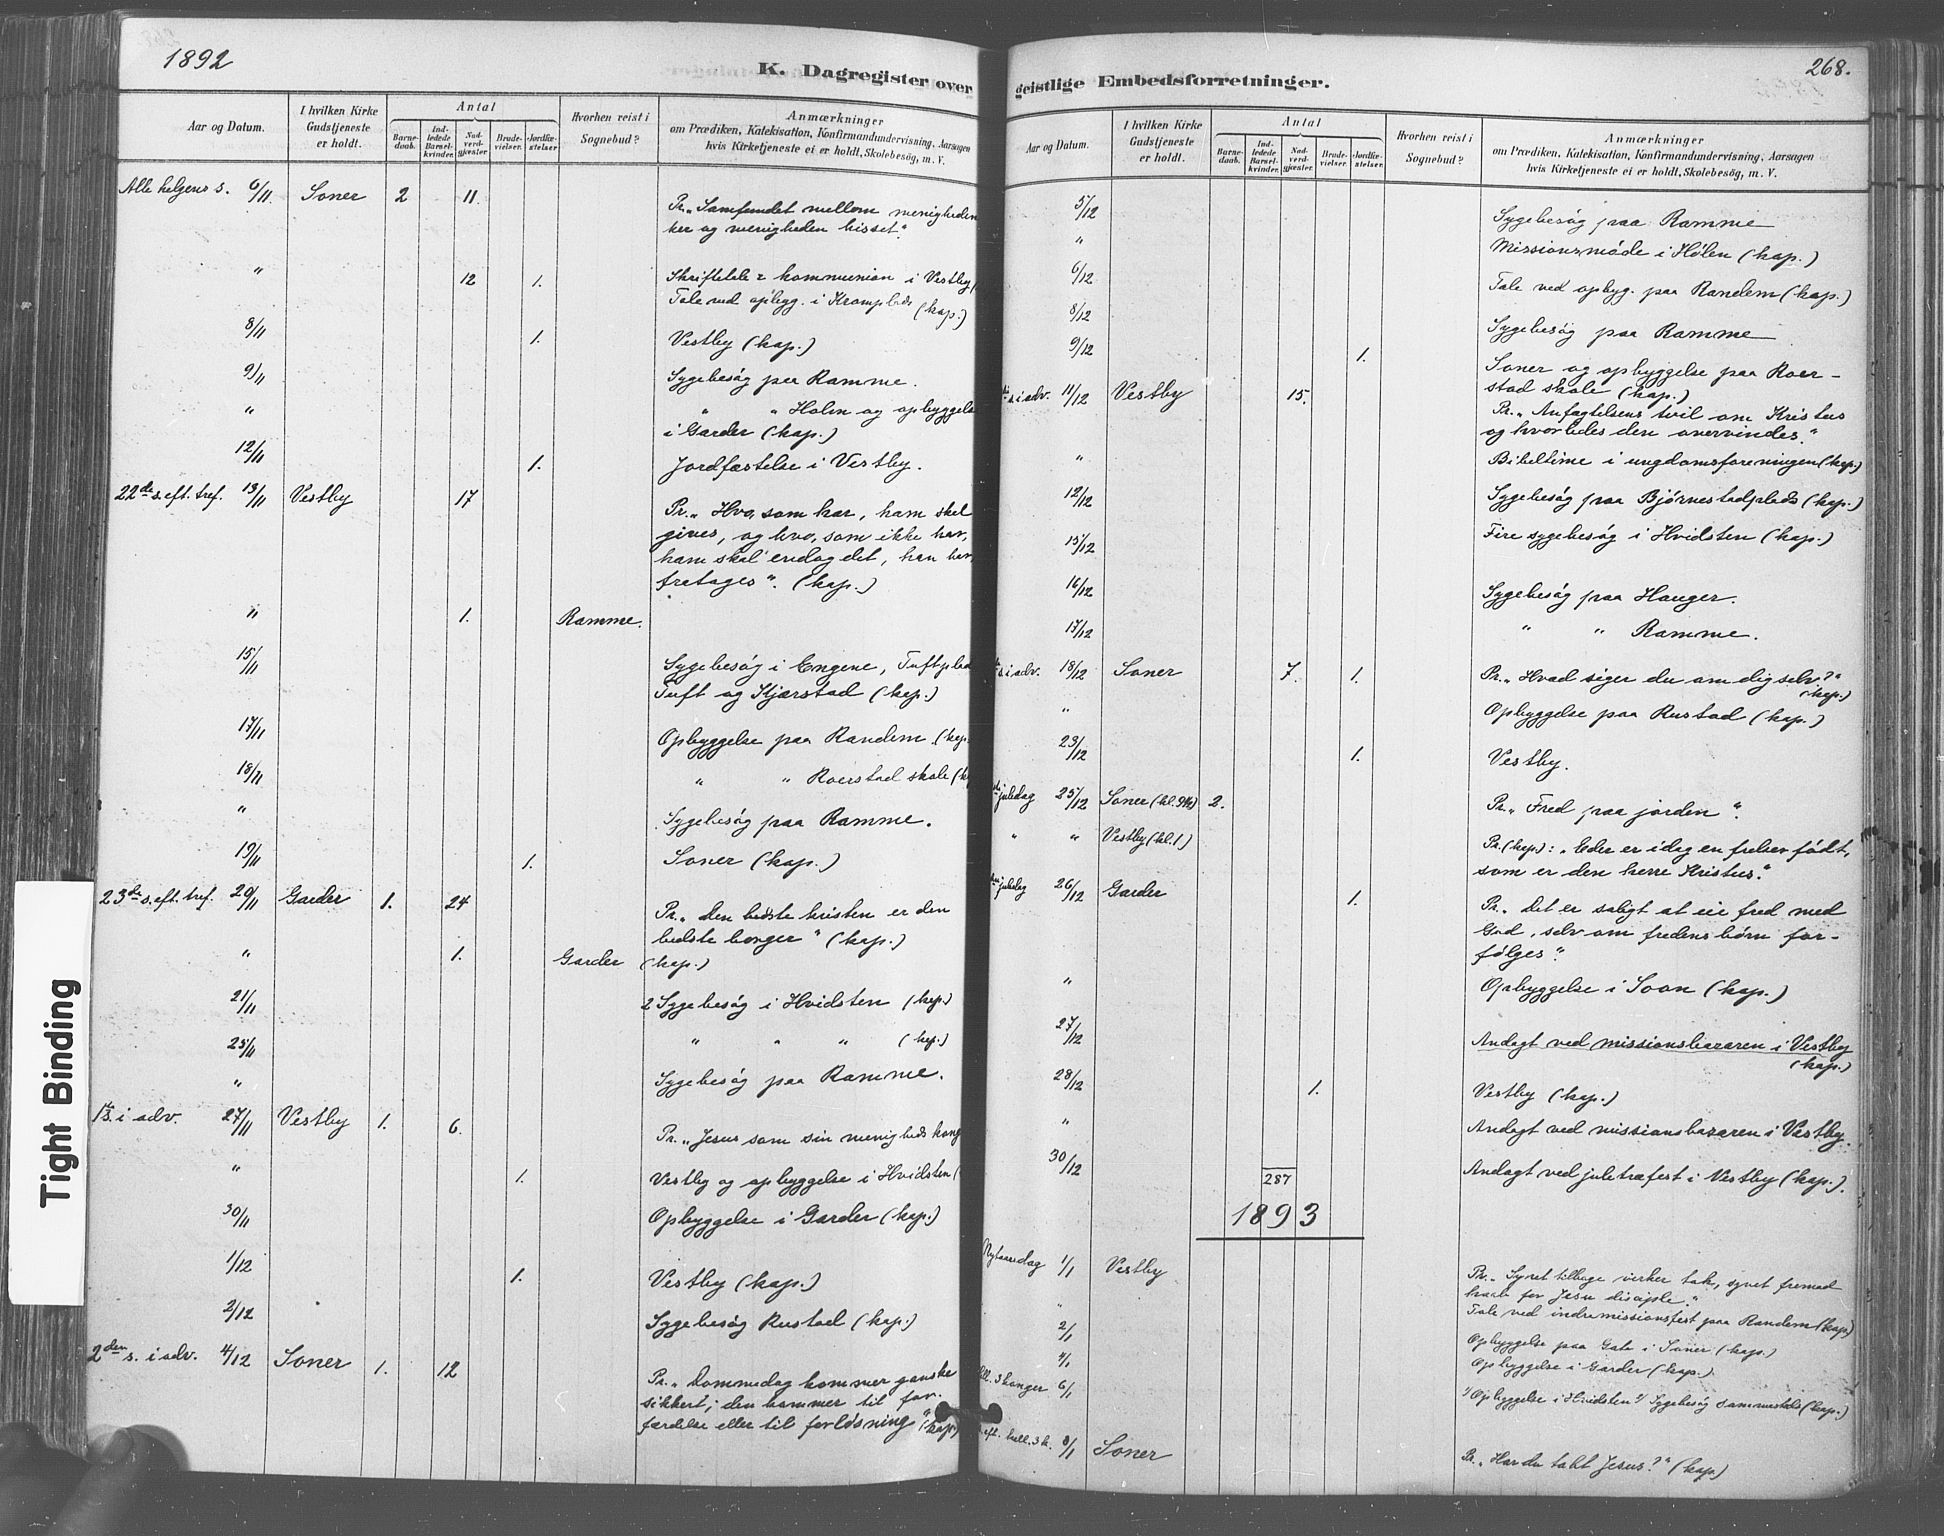 1892
K. Dagregister over
Aar og Datum.
I hvilken Kirke Gudstjeneste er holdt.
Antal
Barnedaab.
Indledede Barselkvinder.
Nadverdgjæster.
Brudevielser.
Jordfæstelser
Hvorhen reist i Sognebud?
Anmærkninger
om Prædiken, Katekisation, Konfirmandundervisning, Aarsagen
hvis Kirketjeneste ei er holdt, Skolebesög, m. V.
Alle helgens s. 6/11 Soner 2 11. Pr. „Samfundet mellem menigheden
her og menigheden hisset".
" 12 1. Skriftetale & kommunion i Vestby
Tale ved opbygg. i Kromplads (kap.)
8/11 1. Vestby (kap.)
9/11 Sygebesøg paa Ramme.
" " " Hølen og opbyggelse
i Garder (kap.)
12/11 1. Jordfæstelse i Vestby.
22de s. eft. tref. 13/11 Vestby 17 Pr. „Hvo, som har, ham skal
gives, og hvo, som ikke har,
ham skal endog det, han har,
fratages". (kap.)
" 1. Ramme.
15/11 Sygebesøg i Engene, Tuftplads
Tuft og Kjærstad (kap.)
17/11 Opbyggelse paa Randem (kap.
18/11 " " Roerstad skole
" Sygebesøg paa Ramme.
19/11 1. Soner (kap.)
23de s. eft. tref. 20/11 Garder 1. 24 Pr. „Den bedste kristen er den
bedste borger" (kap.)
" 1. Garder (kap.)
21/11 2 Sygebesøg i Hvidsten (kap.)
25/11 " " " (kap.)
" Sygebesøg paa Ramme.
1ste s. i adv. 27/11 Vestby 1. 6. Pr. „Jesus som sin menigheds
" 1. Vestby og opbyggelse i Hvidsten (
30/11 Opbyggelse i Garder (kap.)
1/12 1. Vestby (kap.)
2/12 Sygebesøg Rustad (kap.)
2den s. i adv. 4/12 Soner 1. 12 Pr. „Dommedag kommer ganske
sikkert; den kommer til for-
færdelse eller til forløsning" (kap.)
Tight Binding
268.
geistlige Embedsforretninger.
Aar og Datum.
I hvilken Kirke Gudstjeneste er holdt.
Antal
Barnedaab.
Indledede Barselkvinder.
Nadverdgjæster.
Brudevielser.
Jordfæstelser
Hvorhen reist i Sognebud?
Anmærkninger
om Prædiken, Katekisation, Konfirmandundervisning, Aarsagen
hvis Kirketjeneste ei er holdt, Skolebesög, m. V.
5/12 Sygebesøg paa Ramme
" Missionsmøde i Hølen (kap.)
6/12 Tale ved opbyg. paa Randem (kap.)
8/12 Sygebesøg paa Ramme
9/12 1. Soner og opbyggelse paa Roer-
stad skole (kap.)
s. i adv. 11/12 Vestby 15. Pr. „Anfægtelsens tvil om Kristus
og hvorledes den overvindes."
" Bibeltime i ungdomsforeningen (kap.)
12/12 Sygebesøg paa Bjørnestadplads (kap.)
15/12 Fire sygebesøg i Hvidsten (kap.)
16/12 Sygebesøg paa Hauger.
17/12 " " Ramme.
s. i adv. 18/12 Soner 7. 1. Pr. „Hvad siger du om dig selv?"
(kap.)
" Opbyggelse paa Rustad (kap.)
23/12 1. Vestby.
juledag 25/12 Soner (kl. 9½) 2. Pr. „Fred paa jorden".
" " Vestby (kl. 1) Pr. (kap.): „Eder er idag en frelser født,
som er den herre Kristus."
juledag 26/12 Garder 1. Pr. „Det er saligt at eie fred med
Gud, selv om fredens børn for-
følges".
" Opbyggelse i Soon (kap.)
27/12 Andagt ved missionsbazaren i Vestby
(kap.)
28/12 1. Vestby (kap.)
" Andagt ved missionsbazaren i Vestby.
30/12 Andagt ved juletræfest i Vestby (kap.).
287
1893
Nytaarsdag 1/1 Vestby Pr. „Synet tilbage virker tak, synet fremad
haab for Jesu disciple."
" Tale ved indremissionsfest paa Randem (kap)
2/1 Opbyggelse paa Gate i Soner (kap.)
4/1 Opbyggelse i Garder (kap.)
hell. 3 konger 6/1 1) Opbyggelse i Hvidsten 2) Sygebesøg sammesteds (kap.)
s. eft. hell. 3 k. 8/1 Soner Pr. „Har du tabt Jesus?" (kap)